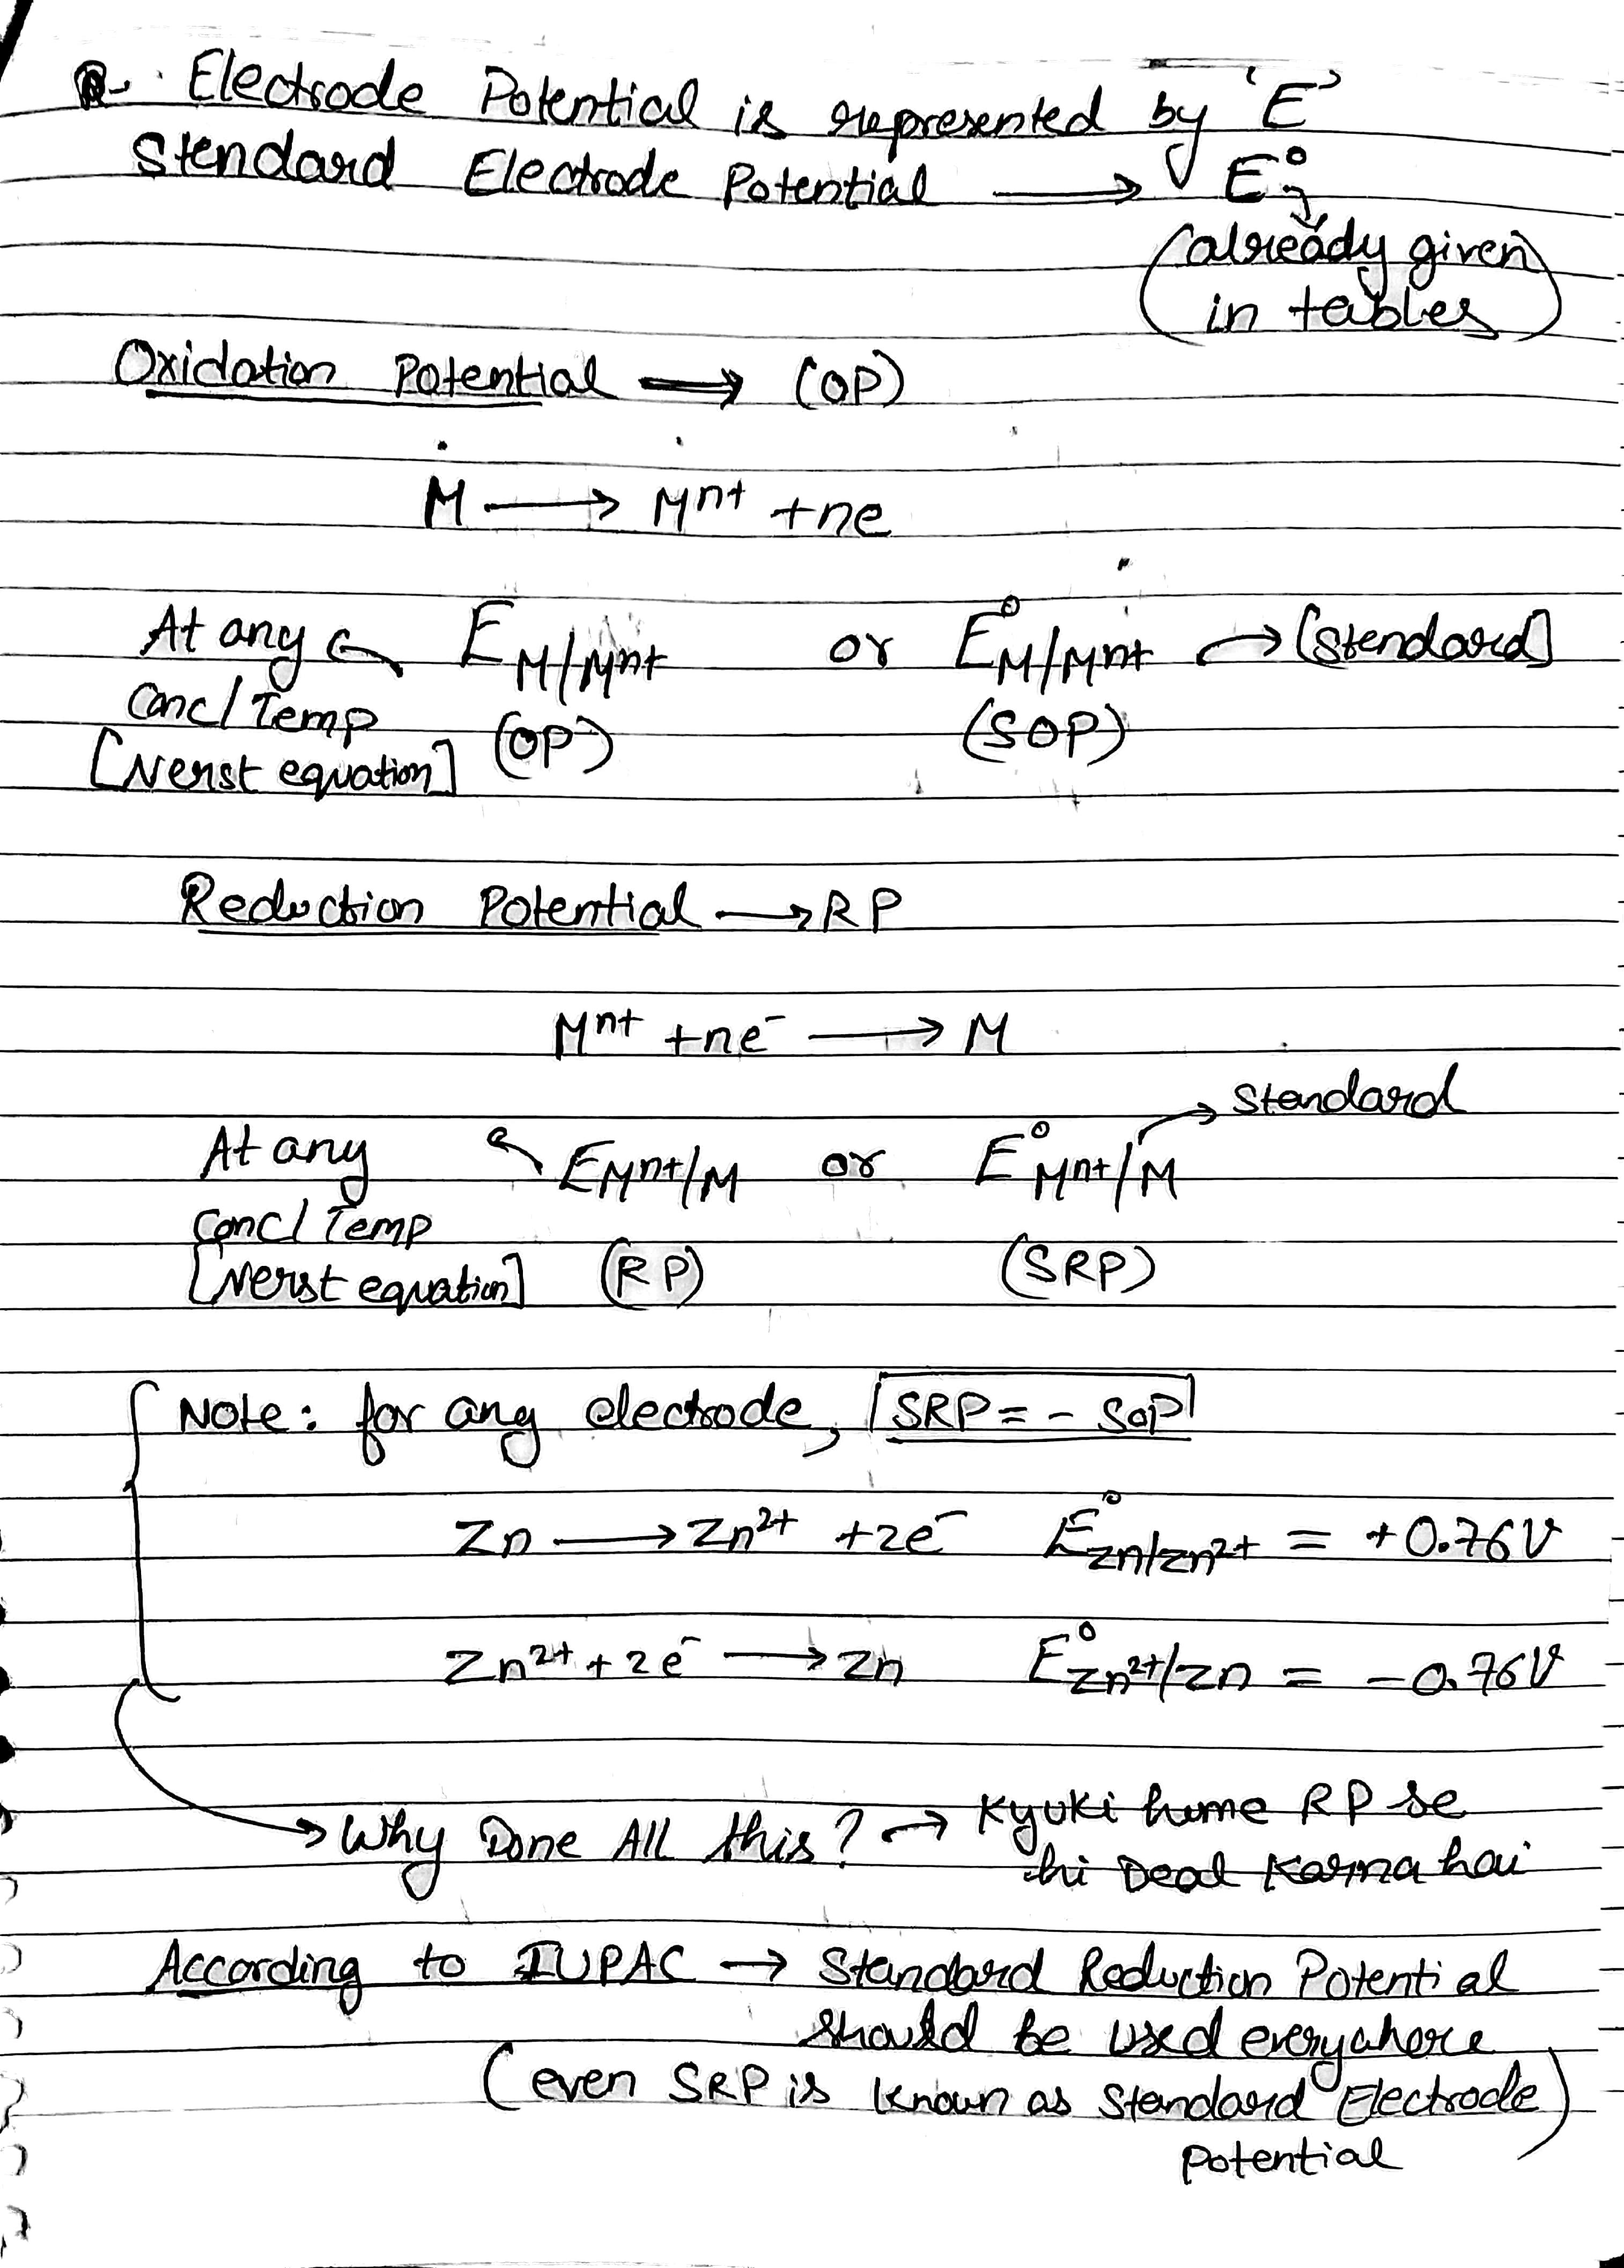 Electrode Potential is represented by 'E'
Stendard Electrode Potential ⟶ E°
(already given
in tables)
Oxidation Potential ⟶ (OP)
M ⟶ Mⁿ⁺ + ne
At any E M/Mⁿ⁺ or E° M/Mⁿ⁺ → [Stendard]
Conc/Temp (OP) (SOP)
[Nerst equation]
Reduction Potential ⟶ RP
Mⁿ⁺ + ne⁻ ⟶ M
Standard
At any E Mⁿ⁺/M or E° Mⁿ⁺/M
Conc/Temp
[Nerst equation] (RP) (SRP)
Note: for any electrode, SRP = - SOP
Zn ⟶ Zn²⁺ + 2e⁻ E° Zn/Zn²⁺ = +0.76V
Zn²⁺ + 2e⁻ ⟶ Zn E° Zn²⁺/Zn = -0.76V
→ Why Done All this? → Kyuki hume RP se
hi Deal Karna hai
According to IUPAC → Standard Reduction Potential
should be used everywhere
(even SRP is known as Standard Electrode
Potential)